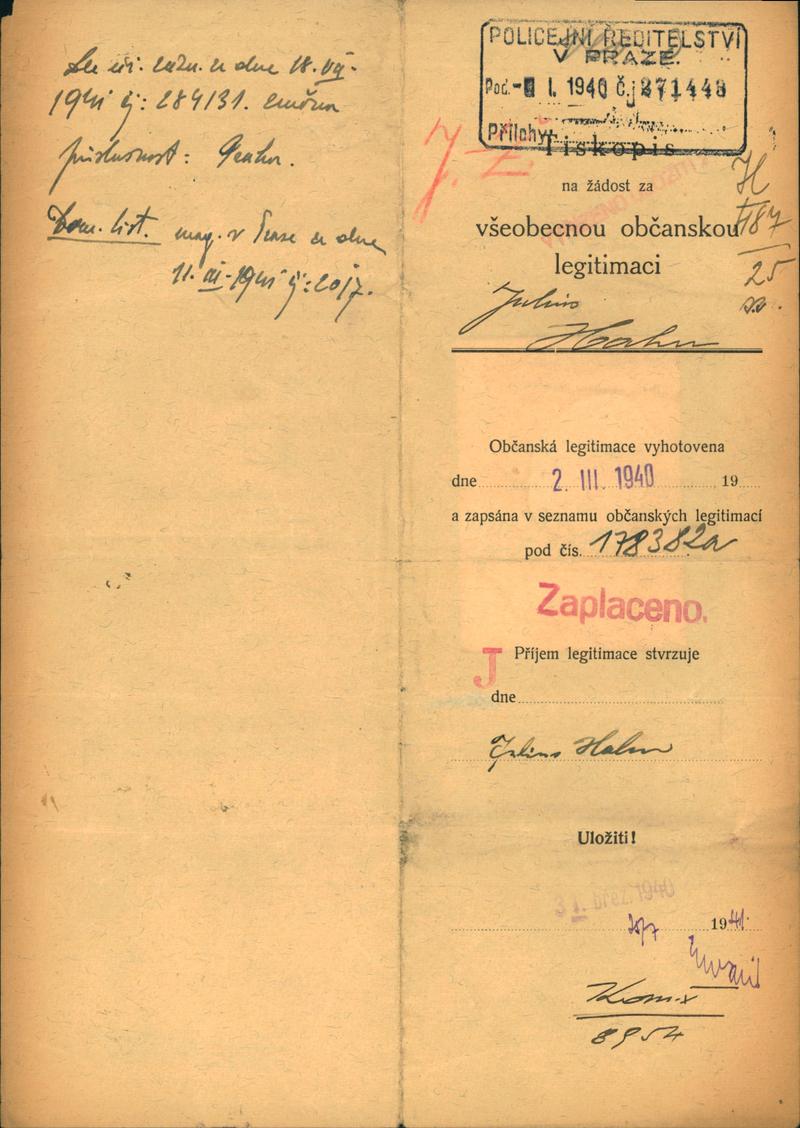 dne 18. VII.
1941 čj: 284131.
příslušnost: Praha.
Dom. list. mag. v Praze ze dne
11. III. 1941 čj: 2017.
POLICEJNÍ ŘEDITELSTVÍ
V PRAZE.
Pod. - I. 1940 č.j 271448
Přílohy:
J. Z
Tiskopis
na žádost za
H
všeobecnou občanskou
1187
legitimaci
25
Julius
Hahn
Občanská legitimace vyhotovena
dne 2. III. 1940 19
a zapsána v seznamu občanských legitimací
pod čís. 178382a
Zaplaceno.
J Příjem legitimace stvrzuje
dne
Julius Hahn
Uložiti!
31. břez. 1940
1941
8954